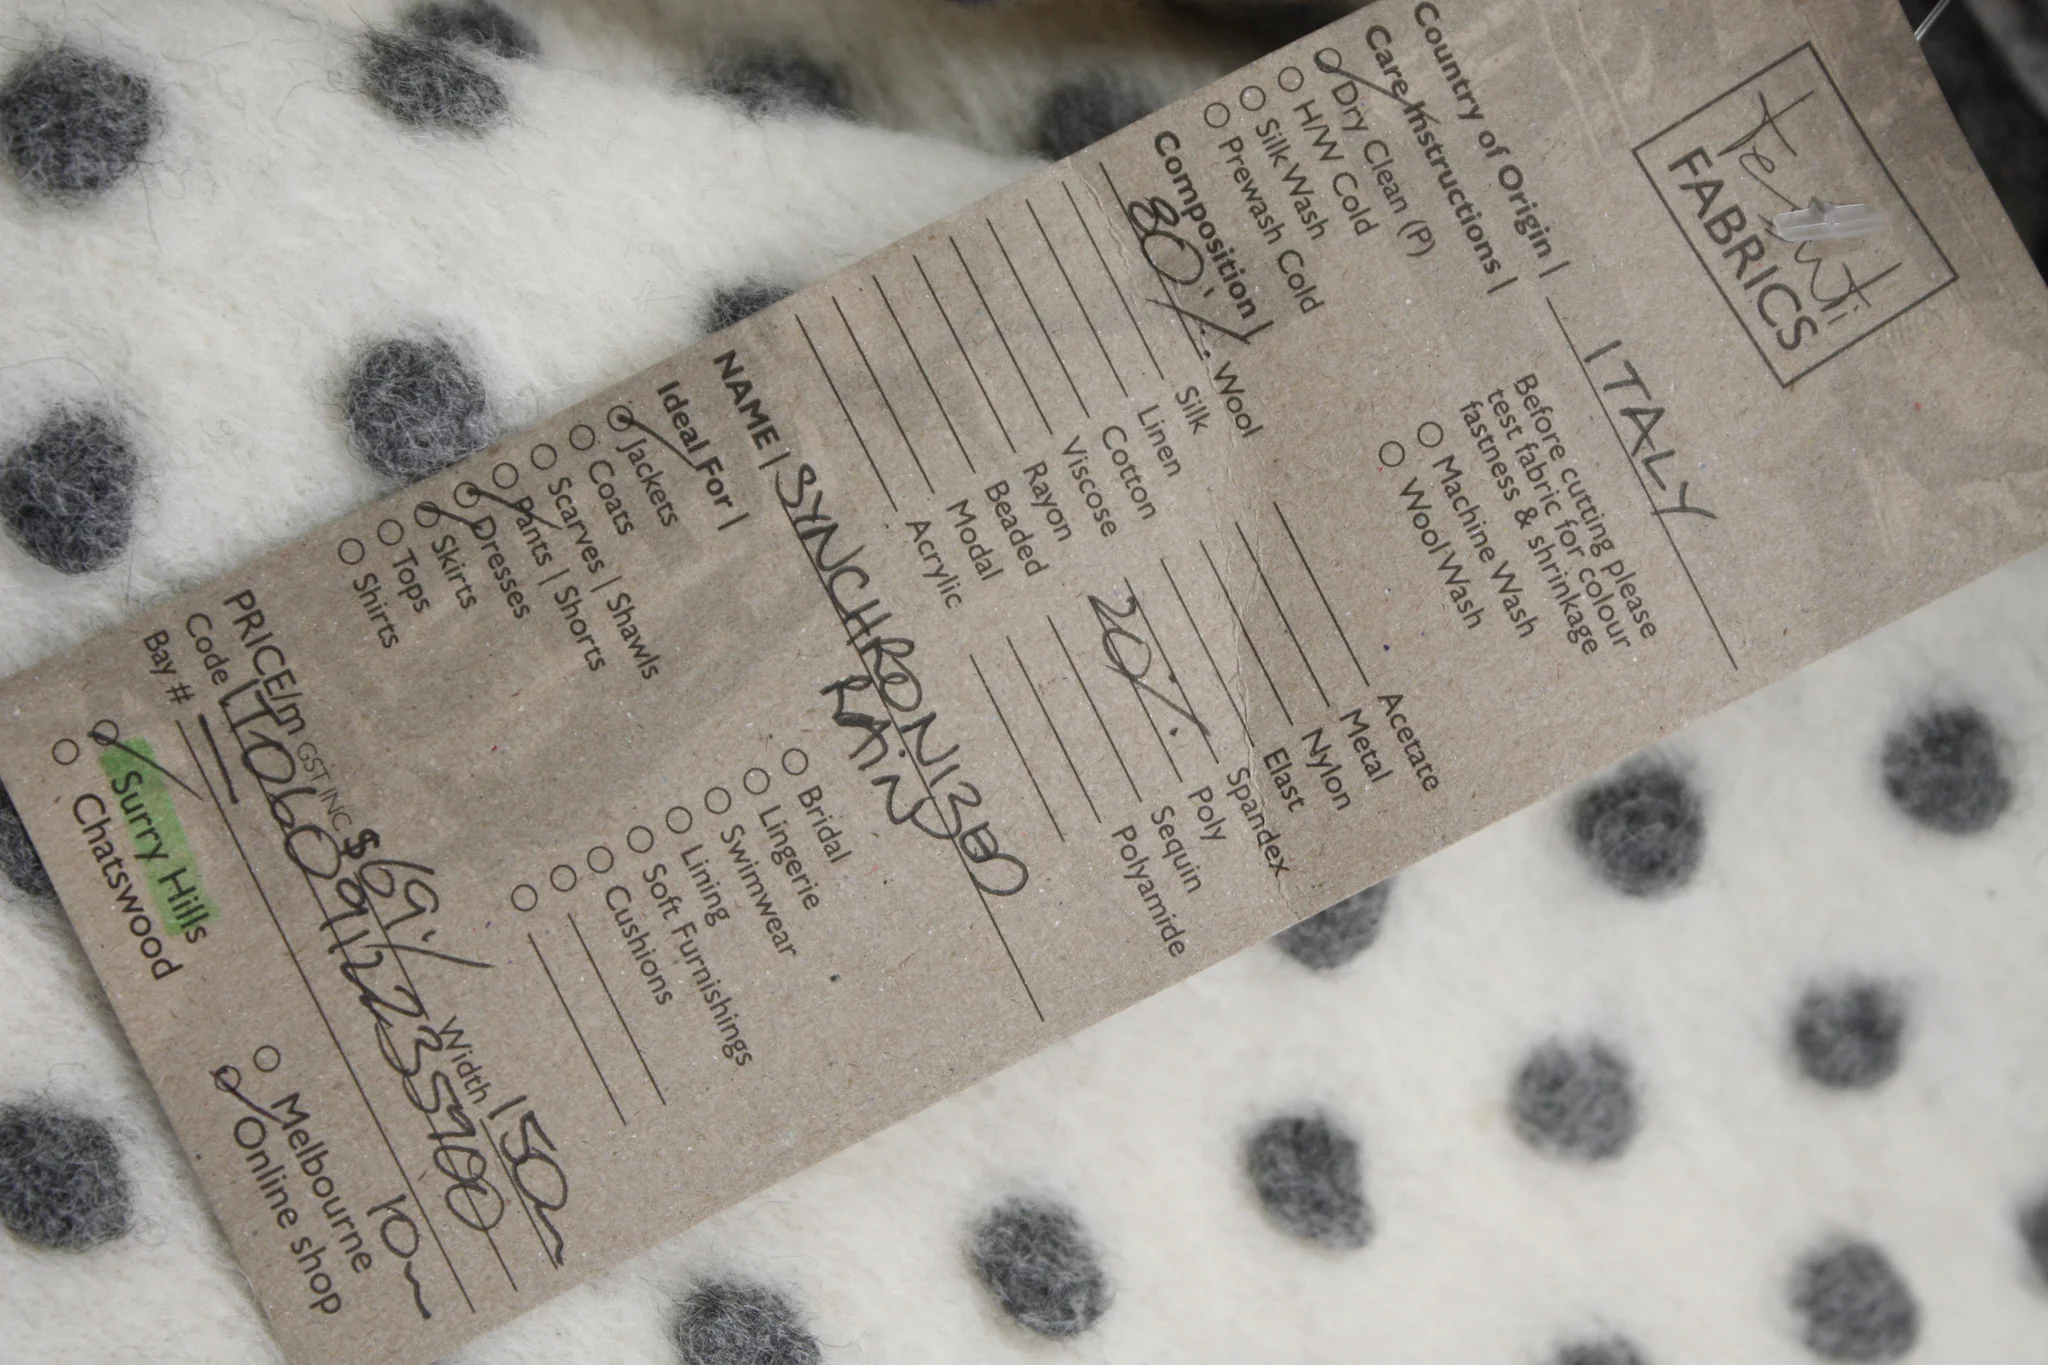 Tessuti
FABRICS
Country of Origin | ITALY
Care Instructions |
Dry Clean (P)
H/W Cold
Silk Wash
Prewash Cold
Before cutting please
test fabric for colour
fastness & shrinkage
Machine Wash
Wool Wash
Composition |
80% Wool
Silk
Linen
Cotton
Viscose
Rayon
Beaded
Modal
Acrylic
Acetate
Metal
Nylon
Elast
Spandex
20% Poly
Sequin
Polyamide
NAME | SYNCHRONIZED
RAIN
Ideal For |
Jackets
Coats
Scarves | Shawls
Pants | Shorts
Dresses
Skirts
Tops
Shirts
Bridal
Lingerie
Swimwear
Lining
Soft Furnishings
Cushions
PRICE/m GST INC $69/ Width 150m
Code LT060912235900
Bay # 10m
Surry Hills
Chatswood
Melbourne
Online shop